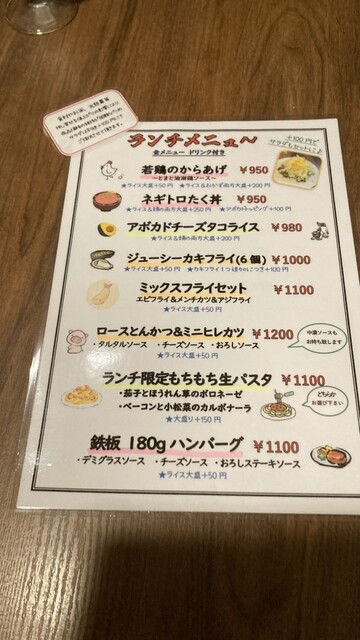 ランチメニュー
全メニュー ドリンク付き
+100円で
サラダもセットに♪
若鶏のからあげ ¥950
～とまと油淋鶏ソース～
★ライス大盛+50円
ネギトロたく丼 ¥950
アボカドチーズタコライス ¥980
ジューシーカキフライ(6個) ¥1000
★ライス大盛+50円
ミックスフライセット ¥1100
エビフライ&メンチカツ&アジフライ
★ライス大盛+50円
ロースとんかつ&ミニヒレカツ ¥1200
・タルタルソース ・チーズソース ・おろしソース
★ライス大盛+50円
中濃ソースも
お持ち致します
ランチ限定もちもち生パスタ ¥1100
・茄子とほうれん草のボロネーゼ
・ベーコンと小松菜のカルボナーラ
★大盛り+150円
どちらか
お選び下さい
鉄板 180g ハンバーグ ¥1100
・デミグラスソース ・チーズソース ・おろしステーキソース
★ライス大盛+50円